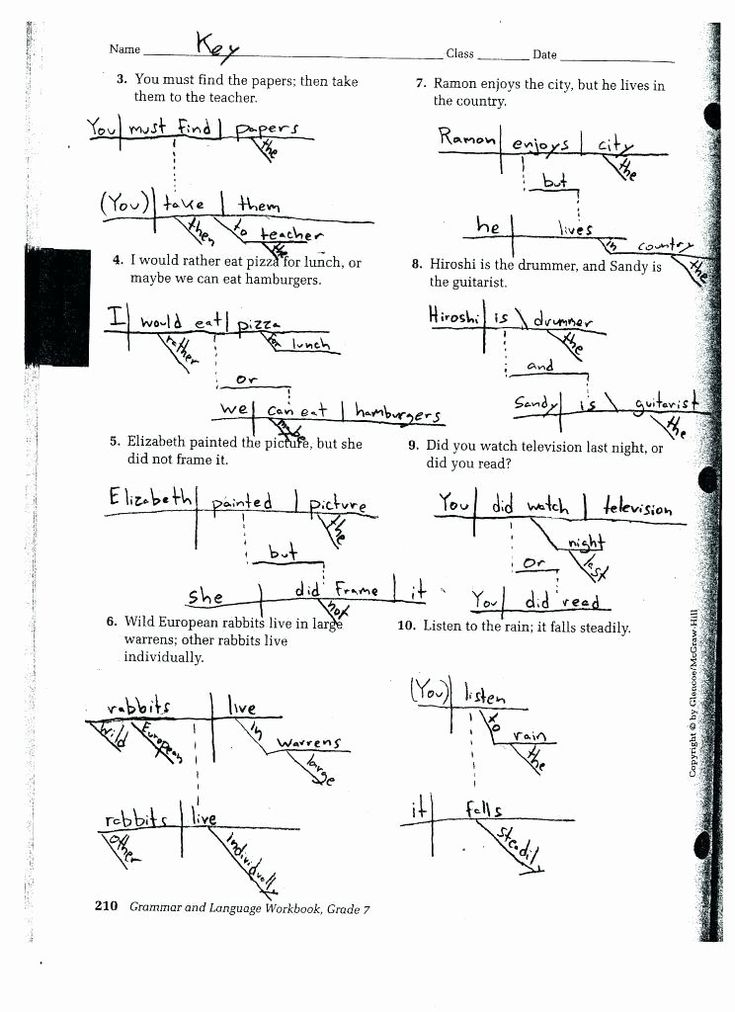 Name Key Class Date
3. You must find the papers; then take
them to the teacher.
You must find papers
the
(You) take them
then to teacher
the
4. I would rather eat pizza for lunch, or
maybe we can eat hamburgers.
I would eat pizza
rather for lunch
or
we can eat hamburgers
maybe
5. Elizabeth painted the picture, but she
did not frame it.
Elizabeth painted picture
the
but
she did frame it
not
6. Wild European rabbits live in large
warrens; other rabbits live
individually.
rabbits live
Wild European in warrens
large
rabbits live
other individually
7. Ramon enjoys the city, but he lives in
the country.
Ramon enjoys city
the
but
he lives
in country
the
8. Hiroshi is the drummer, and Sandy is
the guitarist.
Hiroshi is drummer
the
and
Sandy is guitarist
the
9. Did you watch television last night, or
did you read?
You did watch television
night
last
or
You did read
10. Listen to the rain; it falls steadily.
(You) listen
to rain
the
it falls
steadily
Copyright © by Glencoe/McGraw-Hill
210 Grammar and Language Workbook, Grade 7